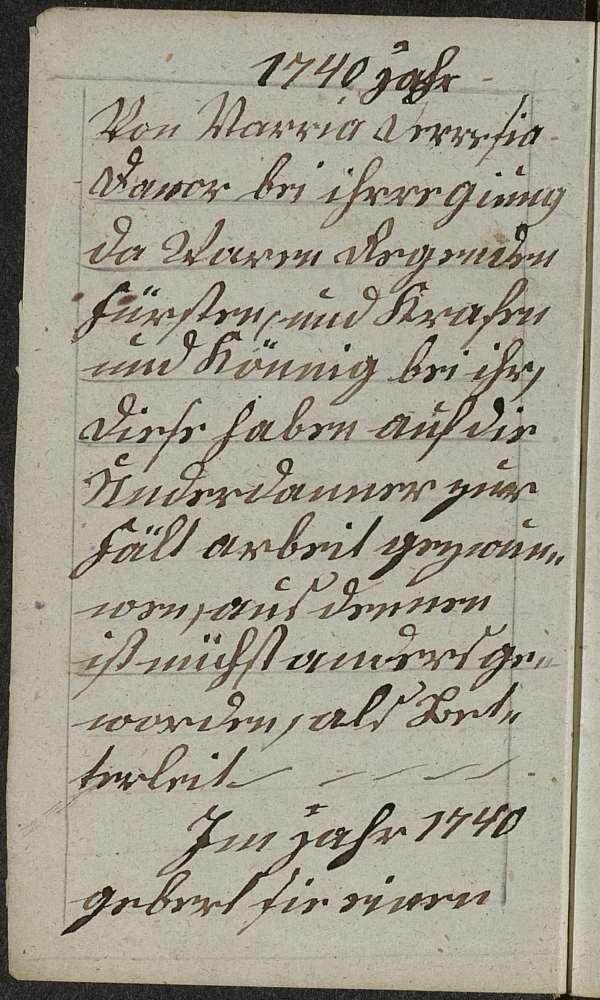 1740 Jahr
Von Marria Terresia
Davor bei ihrregiung
da Waren Regenden
Fürsten, und Krafen
und Könnig bei ihr,
diese haben auf die
Underdanner zur
Fält arbeit gezwun„
wen, aus dennen
ist nüchst anders ge„
worden, als Bet„
terleit
Im Jahr 1740
gebert sie einen